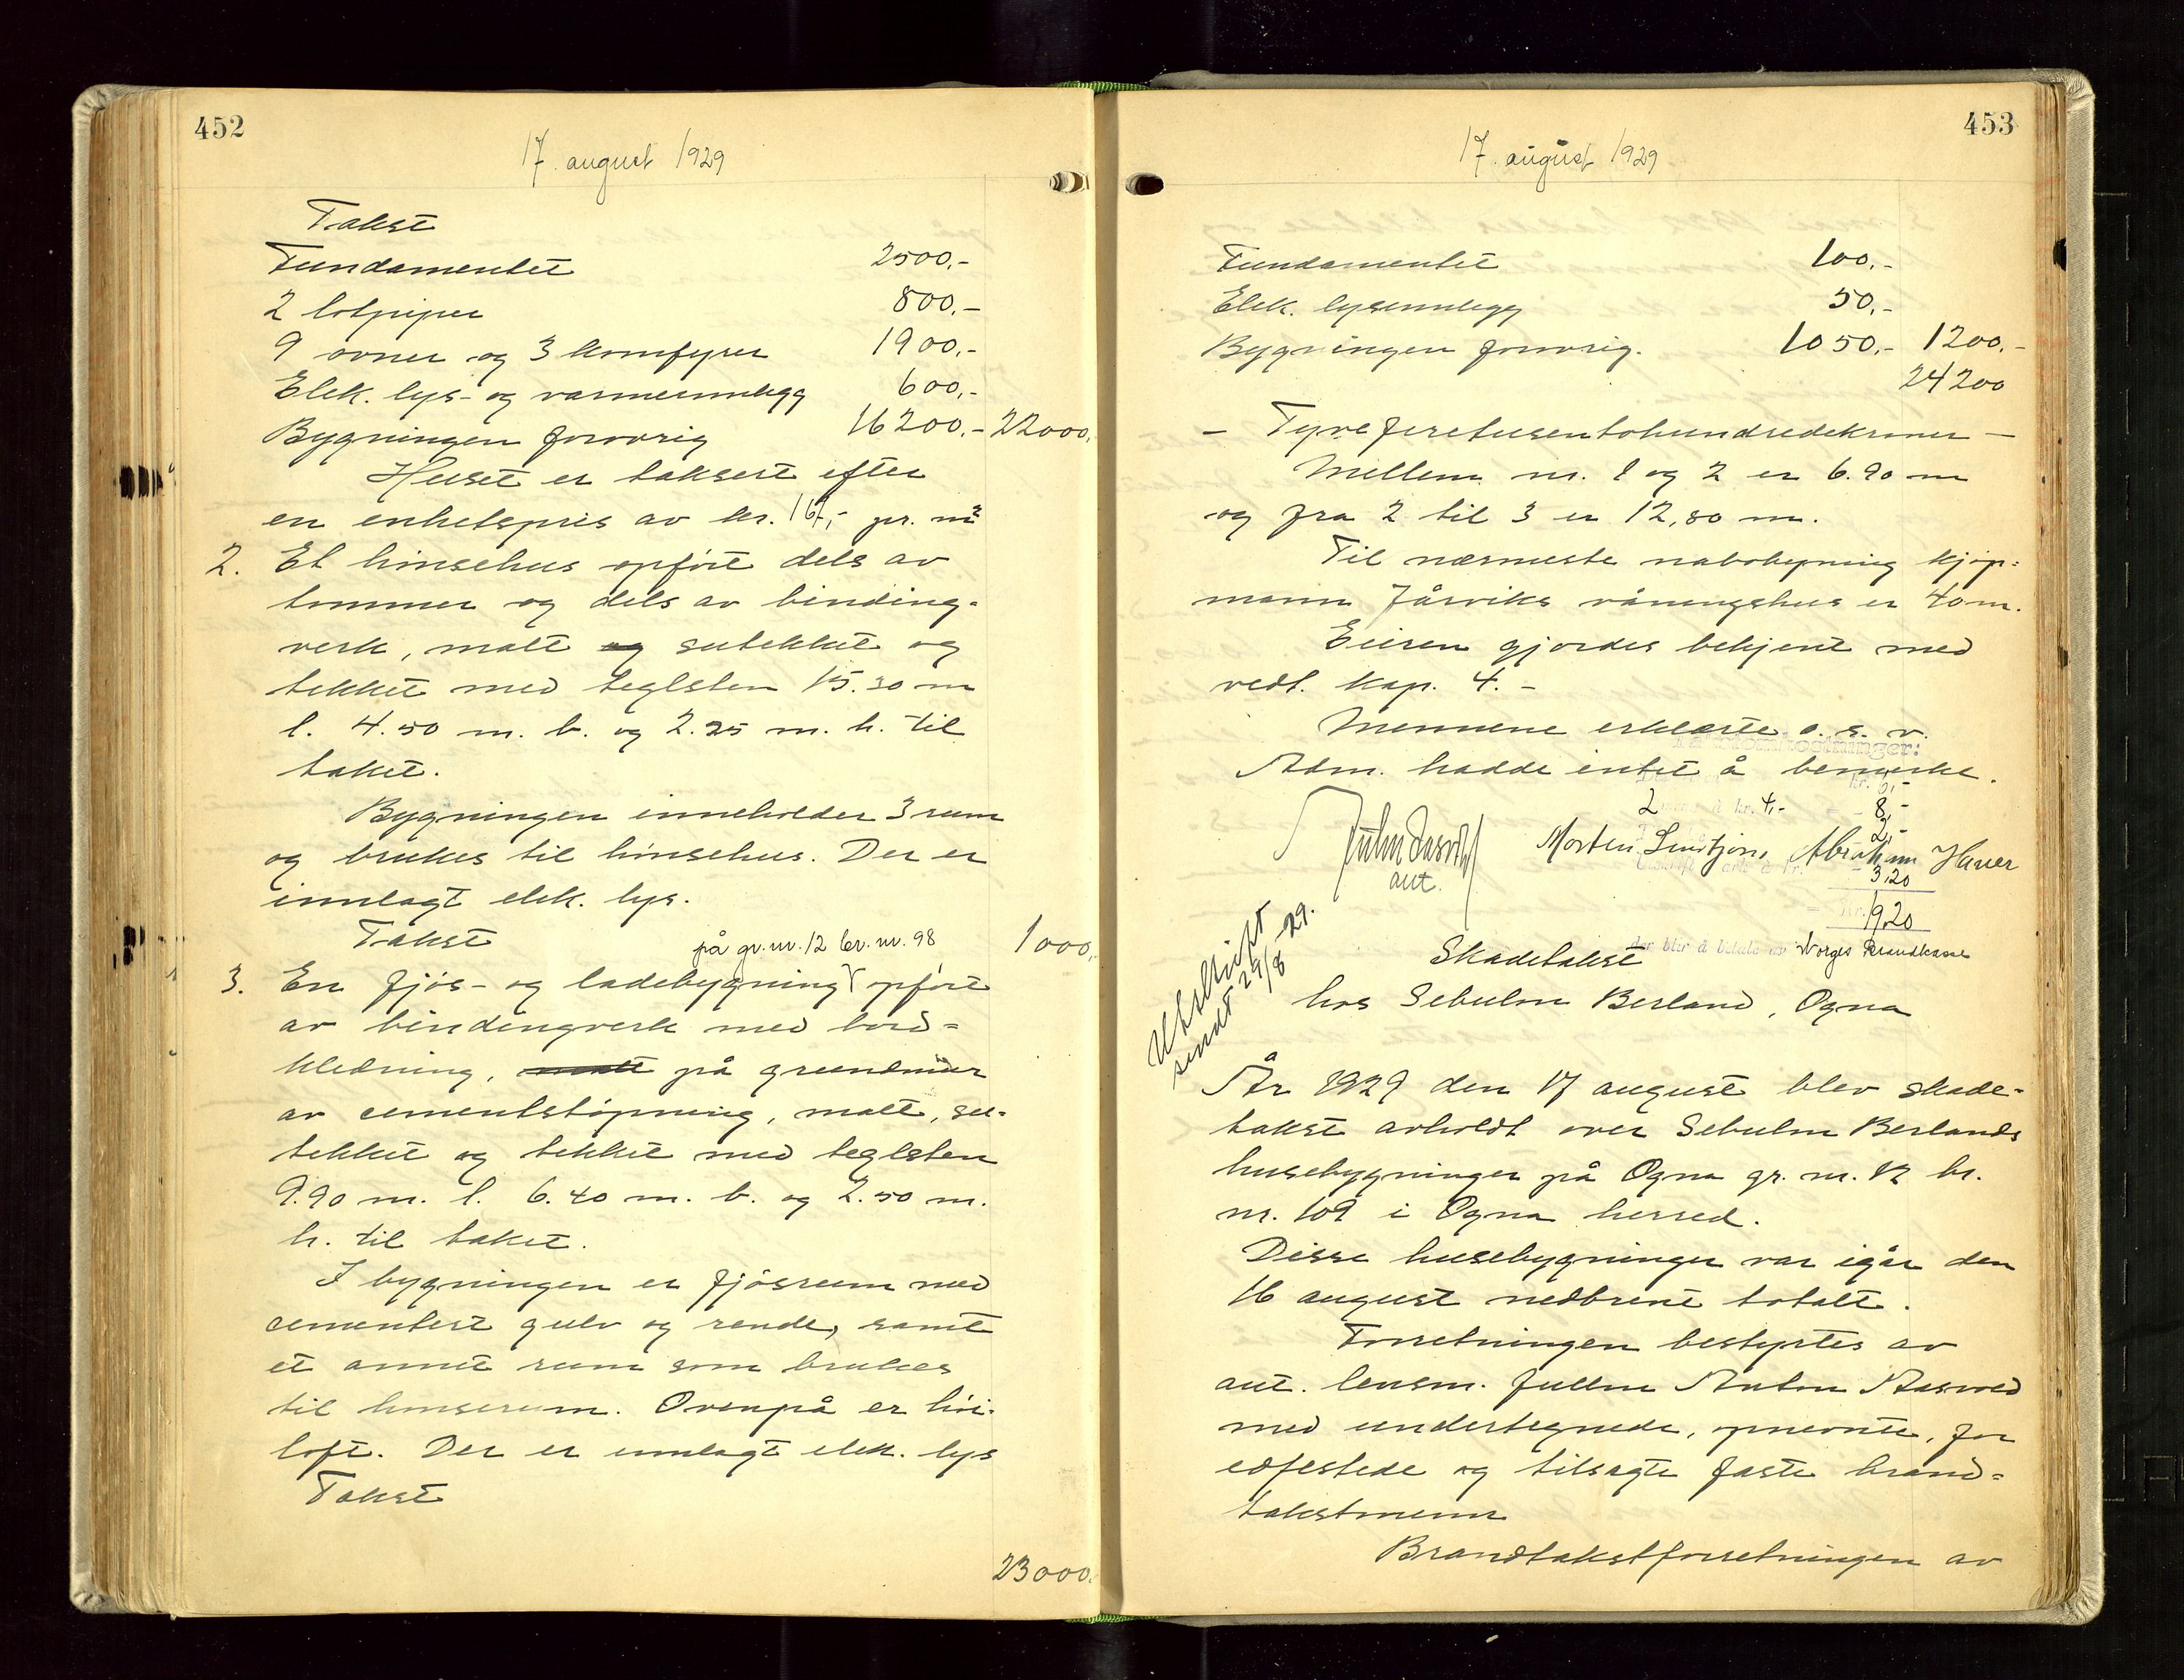 452
17. august 1929
Takst
Fundamentet 2500,-
2 lotpiper 800,-
9 ovner og 3 komfyrer 1900,-
Elek. lys- og varmeinnlegg 600,-
Bygningen forøvrig 16200,- 22000,
Huset er taksert efter
en enhetspris av kr. 167,- pr. m²
2. Et hønsehus opført dels av
tømmer og dels av binding-
verk, malt og sutekket og
tekket med teglsten 15.30 m
l. 4.50 m. b. og 2.25 m. h. til
taket.
Bygningen inneholder 3 rum
og brukes til hønsehus. Der er
innlagt elek. lys.
Takst 1000,
på gr. nr. 12 br. nr. 98
3. En fjøs- og ladebygning opført
av bindingverk med bord-
kledning, malt på grundmur
av cementstøpning, malt, su-
tekket og tekket med teglsten
9.90 m. l. 6.40 m. b. og 2.50 m.
h. til taket.
I bygningen er fjøsrum med
cementert gulv og rende, samt
et annet rum som brukes
til hønserum. Ovenpå er høi-
loft. Der er innlagt elek. lys
Takst
23000.
453
17. august 1929
Fundamentet 100.-
Elek. lysinnlegg 50,-
Bygningen forøvrig. 1050,- 1200,-
24200
- Tyvefiretusentohundredekroner -
Mellem nr. 1 og 2 er 6.90 m
og fra 2 til 3 er 12,80 m.
Til nærmeste nabobygning kjøp-
mann Jårviks våningshus er 40 m.
Eieren gjordes bekjent med
vedt. kap. 4. -
Mennene erklærte o. s. v.
Adm. hadde intet å bemerke.
kr. 6,-
2 à kr. 4,- 8,-
2,-
Morten Abraham
aut.
3,20
Kr. 19,20
der blir å betale av Norges Brandkasse
Utskrift
sendt 29/8 -29.
Skadetakst
hos Sebulon Berland, Ogna
År 1929 den 17 august blev skade-
takst avholdt over Sebulon Berlands
husebygninger på Ogna gr. nr. 12 br.
nr. 109 i Ogna herred.
Disse husebygninger var igår den
16 august nedbrent totalt.
Forretningen bestyrtes av
aut. lensm. Anton Aasved
med undertegnede, opnevnte, for
edfestede og tilsagte faste brand-
takstmenn
Brandtakstforretningen av